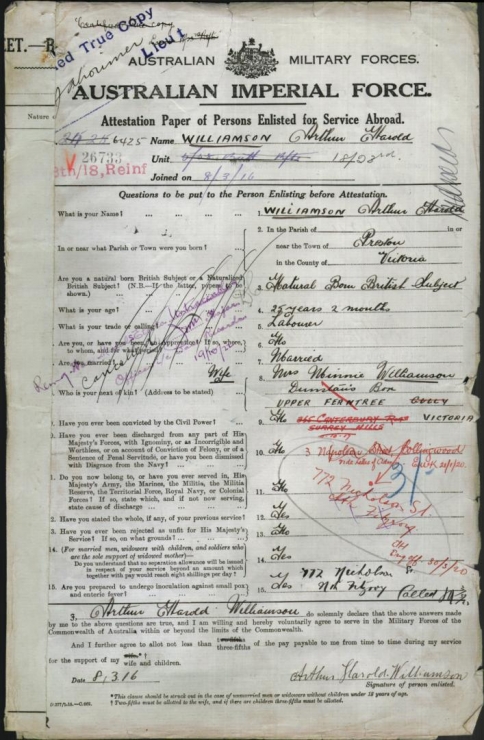 Certified True Copy
Lieut
AUSTRALIAN MILITARY FORCES.
AUSTRALIAN IMPERIAL FORCE.
Attestation Paper of Persons Enlisted for Service Abroad.
6425 Name WILLIAMSON Arthur Harold
V 26733
8th/18, Reinf
Unit
Joined on 8/3/16
Questions to be put to the Person Enlisting before Attestation.
What is your Name? 1. WILLIAMSON Arthur Harold
In or near what Parish or Town were you born? 2. In the Parish of in or
near the Town of Preston
in the County of Victoria
Are you a natural born British Subject or a Naturalized
British Subject? (N.B.—If the latter, papers to be
shown.) 3. Natural Born British Subject
What is your age? 4. 25 years 2 months
What is your trade or calling? 5. Labourer
Are you, or have you been, an Apprentice? If so, where,
to whom, and for what period? 6. No
Are you married? 7. Married
Who is your next of kin? (Address to be stated) Wife 8. Mrs Minnie Williamson
UPPER FERNTREE GULLY
VICTORIA
Have you ever been convicted by the Civil Power? 9. No
CANTERBURY
SURREY HILLS
Have you ever been discharged from any part of His
Majesty's Forces, with Ignominy, or as Incorrigible and
Worthless, or on account of Conviction of Felony, or of a
Sentence of Penal Servitude, or have you been dismissed
with Disgrace from the Navy? 10. No
3 Napoleon Street Collingwood
Do you now belong to, or have you ever served in, His
Majesty's Army, the Marines, the Militia, the Militia
Reserve, the Territorial Force, Royal Navy, or Colonial
Forces? If so, state which, and if not now serving,
state cause of discharge 11. No
772 Nicholson St
Nth Fitzroy
Have you stated the whole, if any, of your previous service? 12. Yes
Have you ever been rejected as unfit for His Majesty's
Service? If so, on what grounds? 13. No
14. (For married men, widowers with children, and soldiers who
are the sole support of widowed mother)—
Do you understand that no separation allowance will be issued
in respect of your service beyond an amount which
together with pay would reach eight shillings per day? 14. Yes
Are you prepared to undergo inoculation against small pox
and enteric fever? 15. Yes
772 Nicholson St
Nth Fitzroy
I, Arthur Harold Williamson do solemnly declare that the above answers made
by me to the above questions are true, and I am willing and hereby voluntarily agree to serve in the Military Forces of the
Commonwealth of Australia within or beyond the limits of the Commonwealth.
And I further agree to allot not less than three-fifths of the pay payable to me from time to time during my service
for the support of my wife and children.
Date 8.3.16
Arthur Harold Williamson
Signature of person enlisted.
*This clause should be struck out in the case of unmarried men or widowers without children under 18 years of age.
† Two-fifths must be allotted to the wife, and if there are children three-fifths must be allotted.